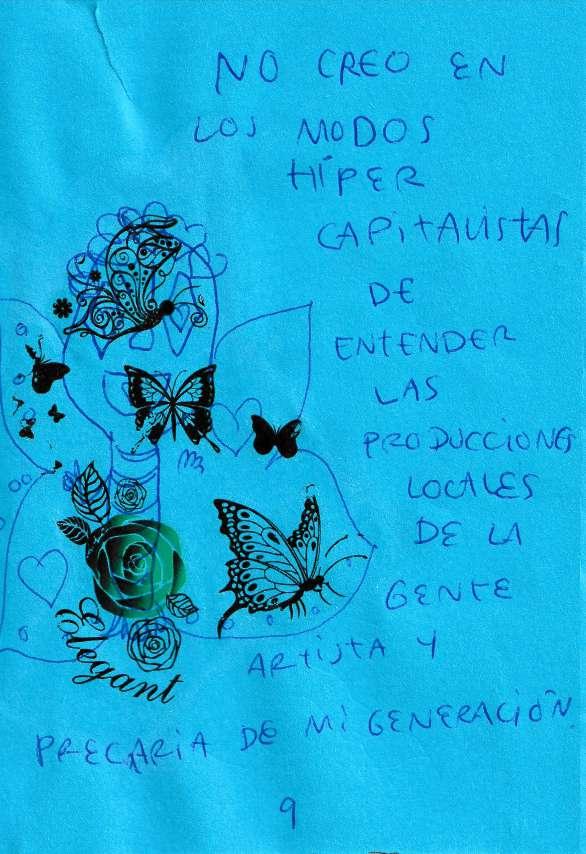 NO CREO EN
LOS MODOS
HÍPER
CAPITALISTAS
DE
ENTENDER
LAS
PRODUCCIONES
LOCALES
DE LA
GENTE
ARTISTA Y
PRECARIA DE MI GENERACIÓN
Elegant
9